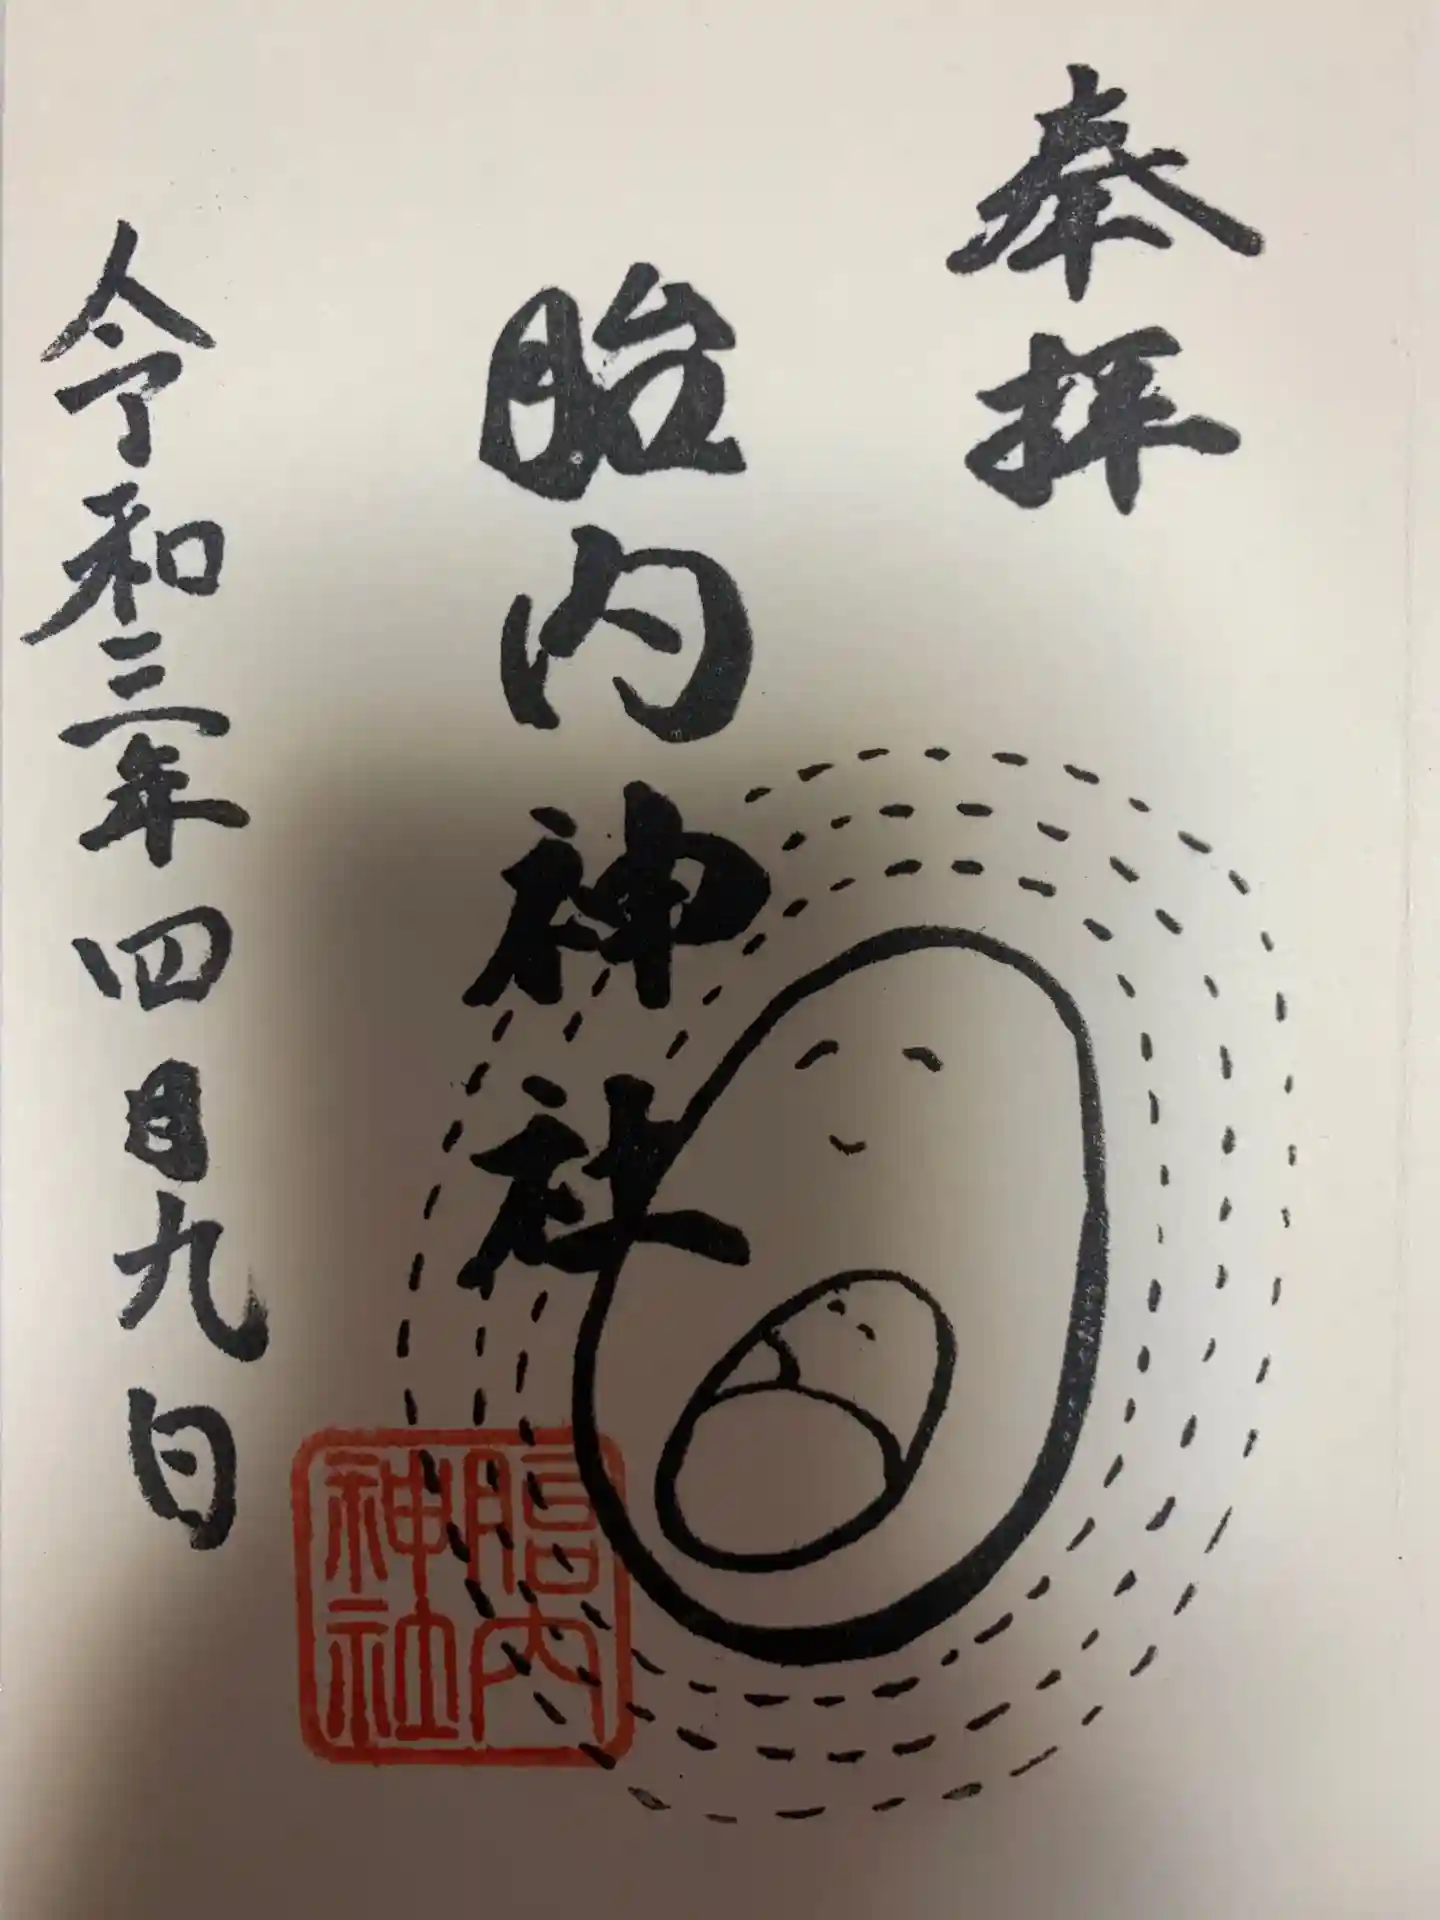 奉拝
胎内神社
令和三年四月九日
胎内
神社